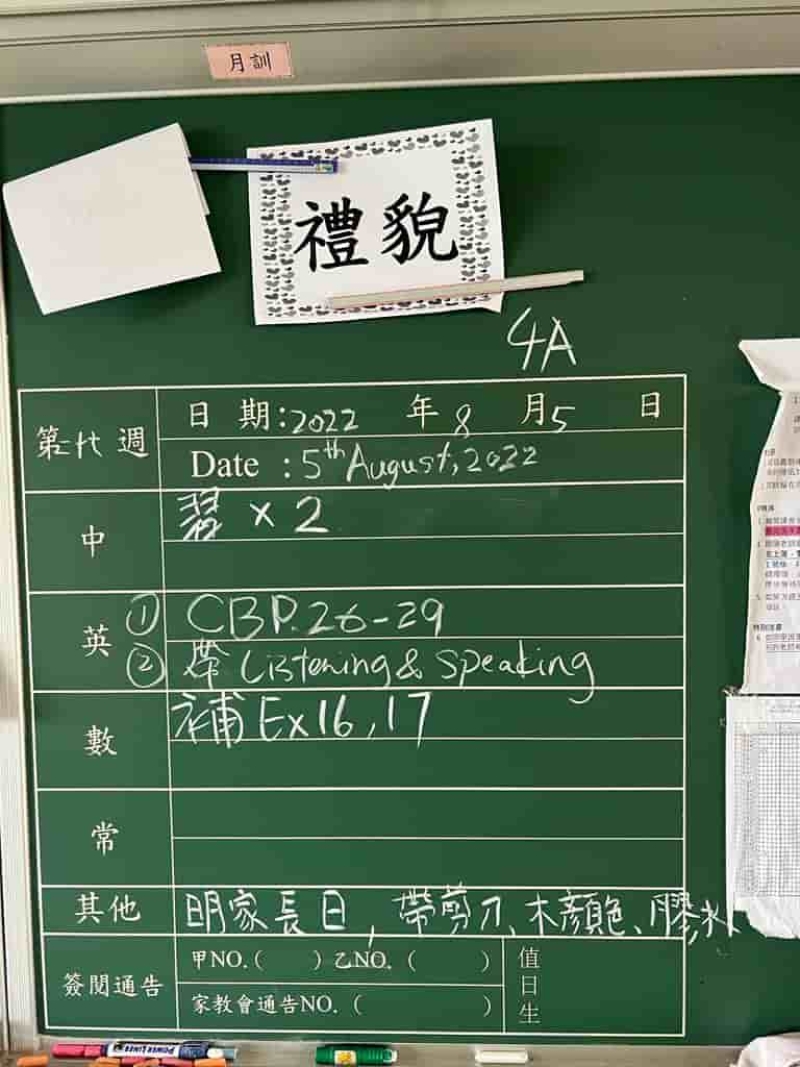 月訓
禮貌
4A
週
日 期:2022 年8月5日
Date : 5th August, 2022
中
習 x 2
英
① CB P.26-29
② 帶 Listening & Speaking
數
補 Ex 16, 17
常
其他
明家長日,帶剪刀、木顏色、膠水
簽閱通告
甲NO.( ) 乙NO. ( )
家教會通告NO. ( )
值日生